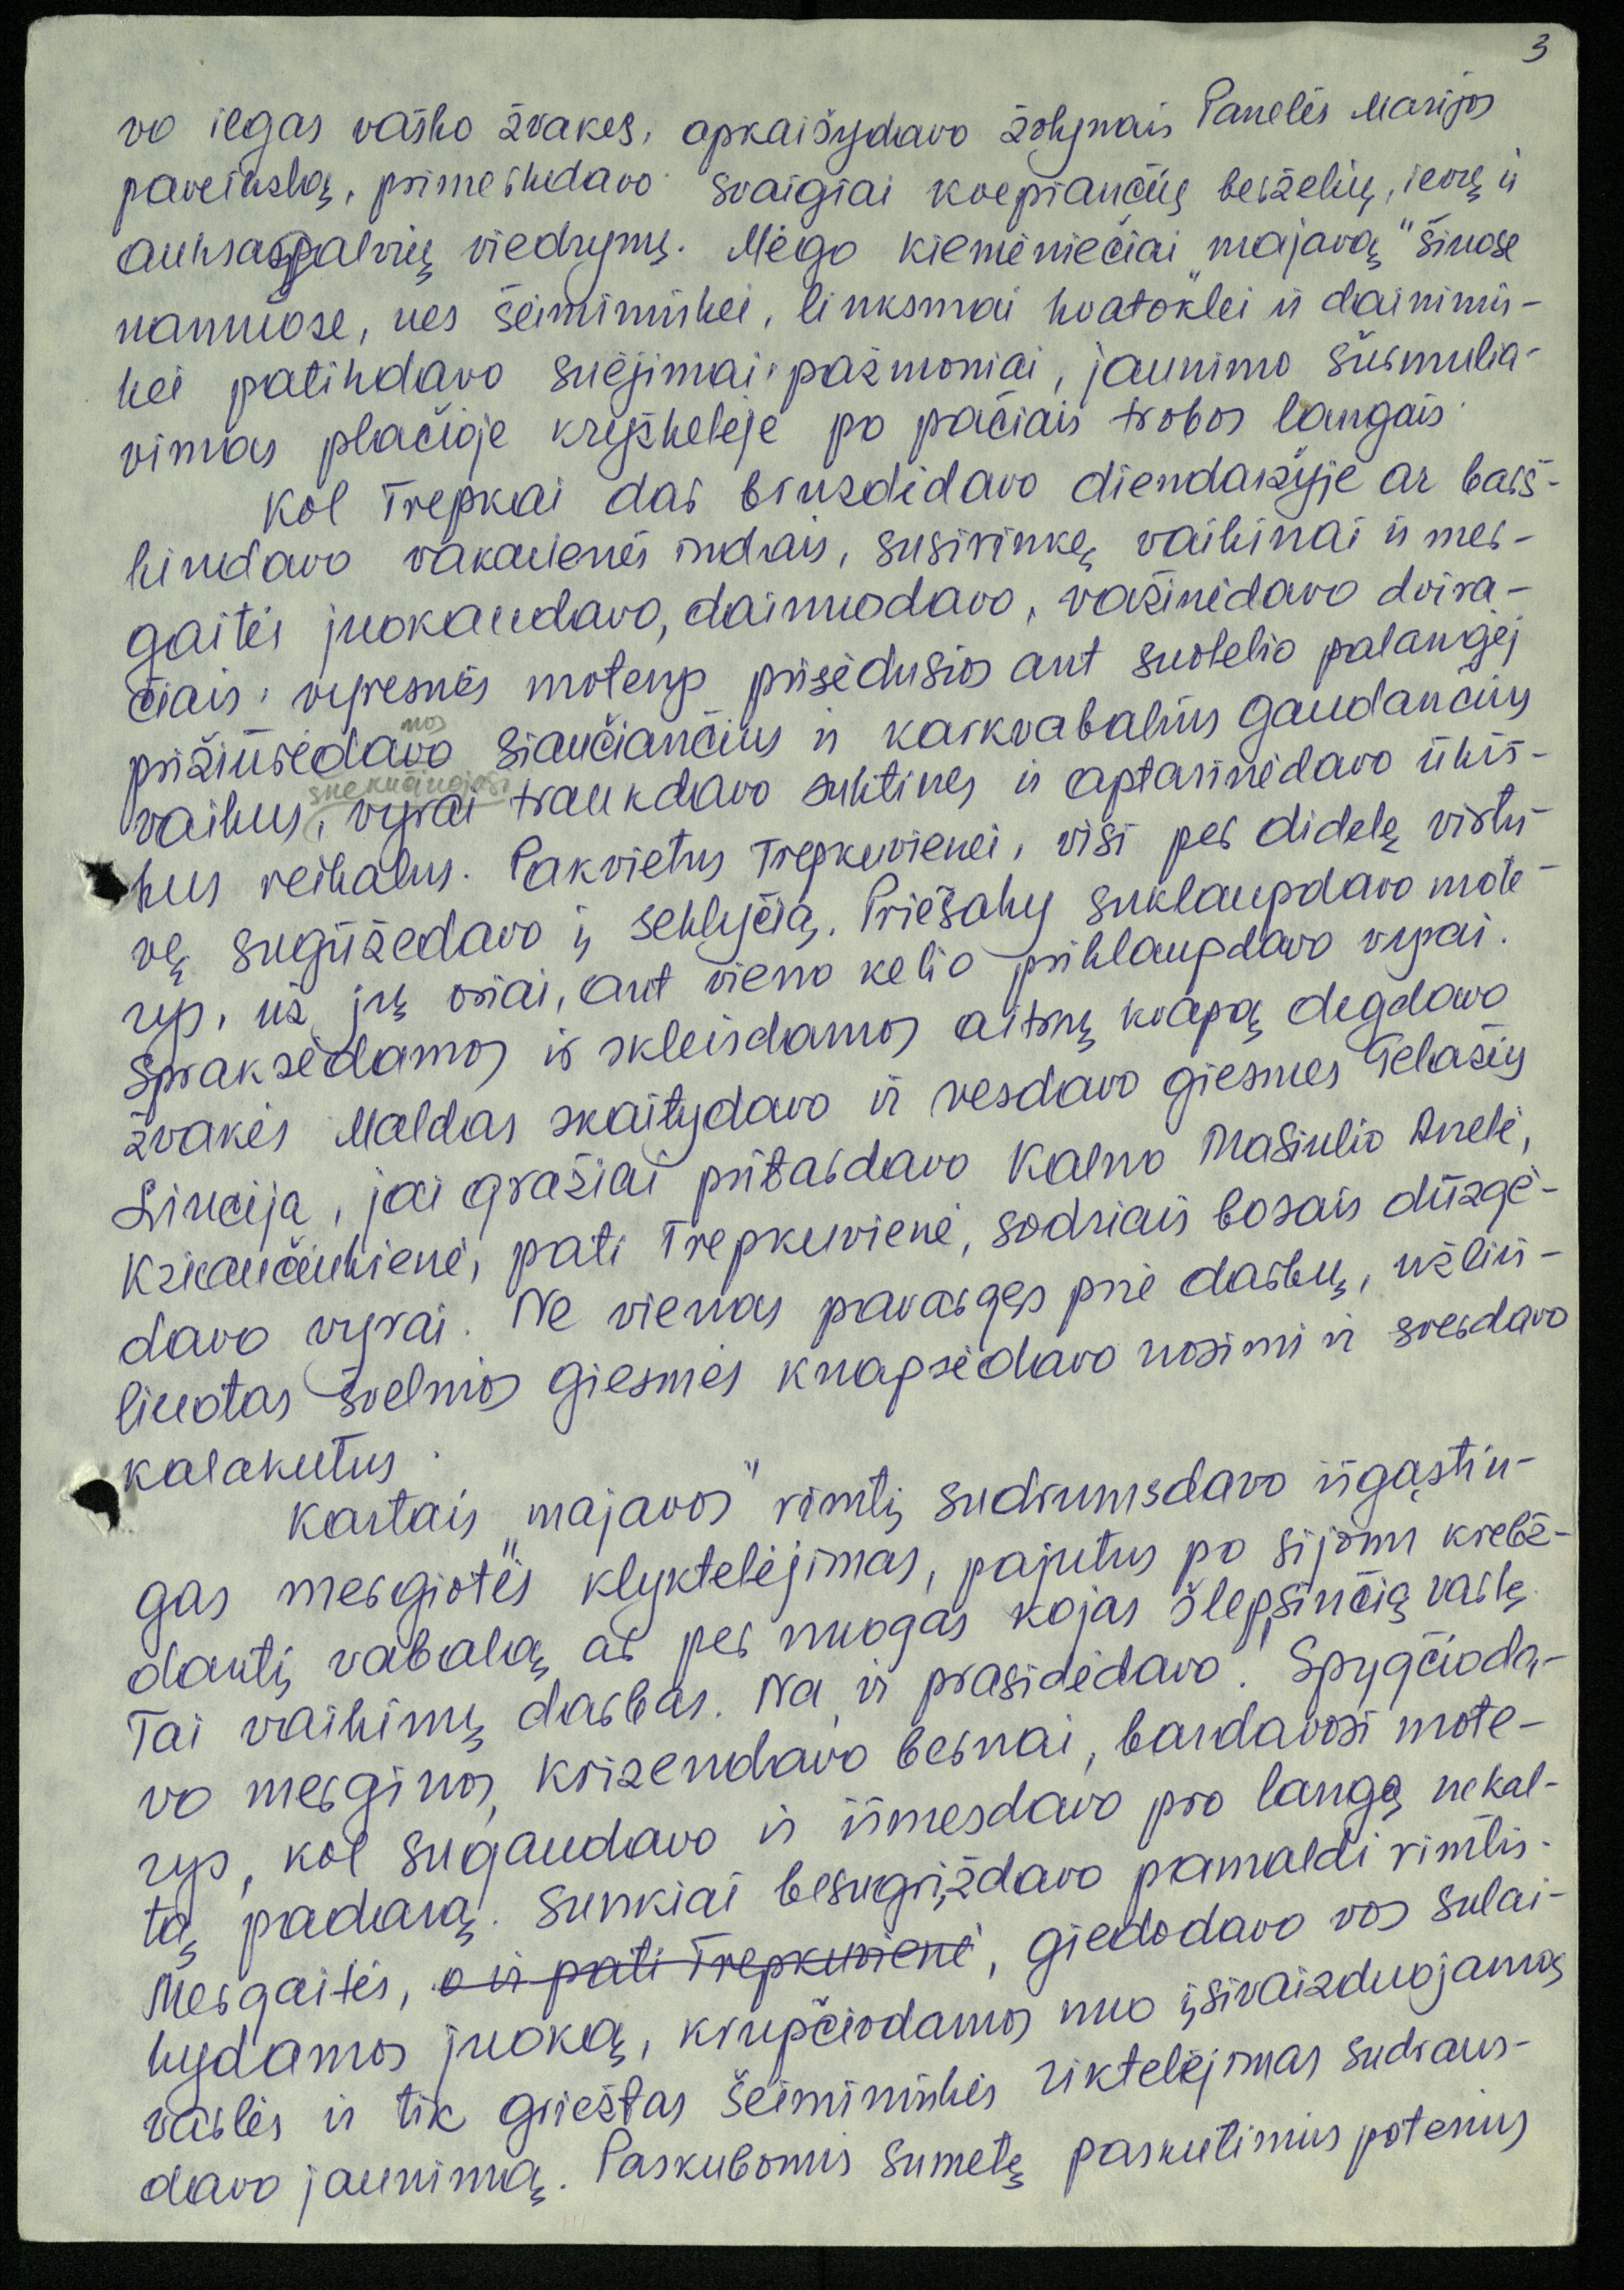 3
vo ilgas vaško žvakes, apkaišydavo žolynais Panelės Marijos
paveikslą, primerkdavo svaigiai kvepiančių berželių, ievų ir
auksaspalvių viedrynų. Mėgo kiemėniečiai „majavą" šiuose
namuose, nes šeimininkei, linksmai kvatoklei ir daininin-
kei patikdavo suėjimai, pažmoniai, jaunimo šurmulia-
vimas plačioje kryžkelėje po pačiais trobos langais.
Kol Trepkai dar bruzdėdavo diendaržyje ar barš-
kindavo vakarienės indais, susirinkę vaikinai ir mer-
gaitės juokaudavo, dainuodavo, važinėdavo dvira-
čiais, vyresnės moterys prisėdusios ant suolelio palangėj
nos
prižiūrėdavo siaučiančius ir karkvabalius gaudančius
šnekučiuojasi
vaikus, vyrai traukdavo suktines ir aptarinėdavo ūkiš-
kus reikalus. Pakvietus Trepkuvienei, visi per didelę virtu-
vę sugūžėdavo į seklyčią. Priešaky suklaupdavo mote-
rys, už jų oriai, ant vieno kelio priklaupdavo vyrai.
Spraksėdamos ir skleisdamos aitrų kvapą degdavo
žvakės. Maldas skaitydavo ir vesdavo giesmes Telažių
Liucija, jai gražiai pritardavo Kalno Masiulio Anelė,
Kriaučiukienė, pati Trepkuvienė, sodriais bosais dūzgė-
davo vyrai. Ne vienas pavargęs prie darbų, užliū-
liuotas švelnios giesmės knapsėdavo nosimi ir sverdavo
kalakutus.
Kartais „majavos" rimtį sudrumsdavo išgąstin-
gas mergiotės klyktelėjimas, pajutus po sijonu krebž-
dantį vabalą ar per nuogas kojas šlepsinčią varlę.
Tai vaikinų darbas. Na, ir prasidėdavo! Spygčioda-
vo merginos, krizendavo bernai, bardavosi mote-
rys, kol sugaudavo ir išmesdavo pro langą nekal-
tą padarą. Sunkiai besugrįždavo pamaldi rimtis.
Mergaitės, o ir pati Trepkuvienė, giedodavo vos sulai-
kydamos juoką, krūpčiodamos nuo įsivaizduojamos
varlės ir tik griežtas šeimininkės riktelėjimas sudraus-
davo jaunimą. Paskubomis sumetę paskutinius poterius